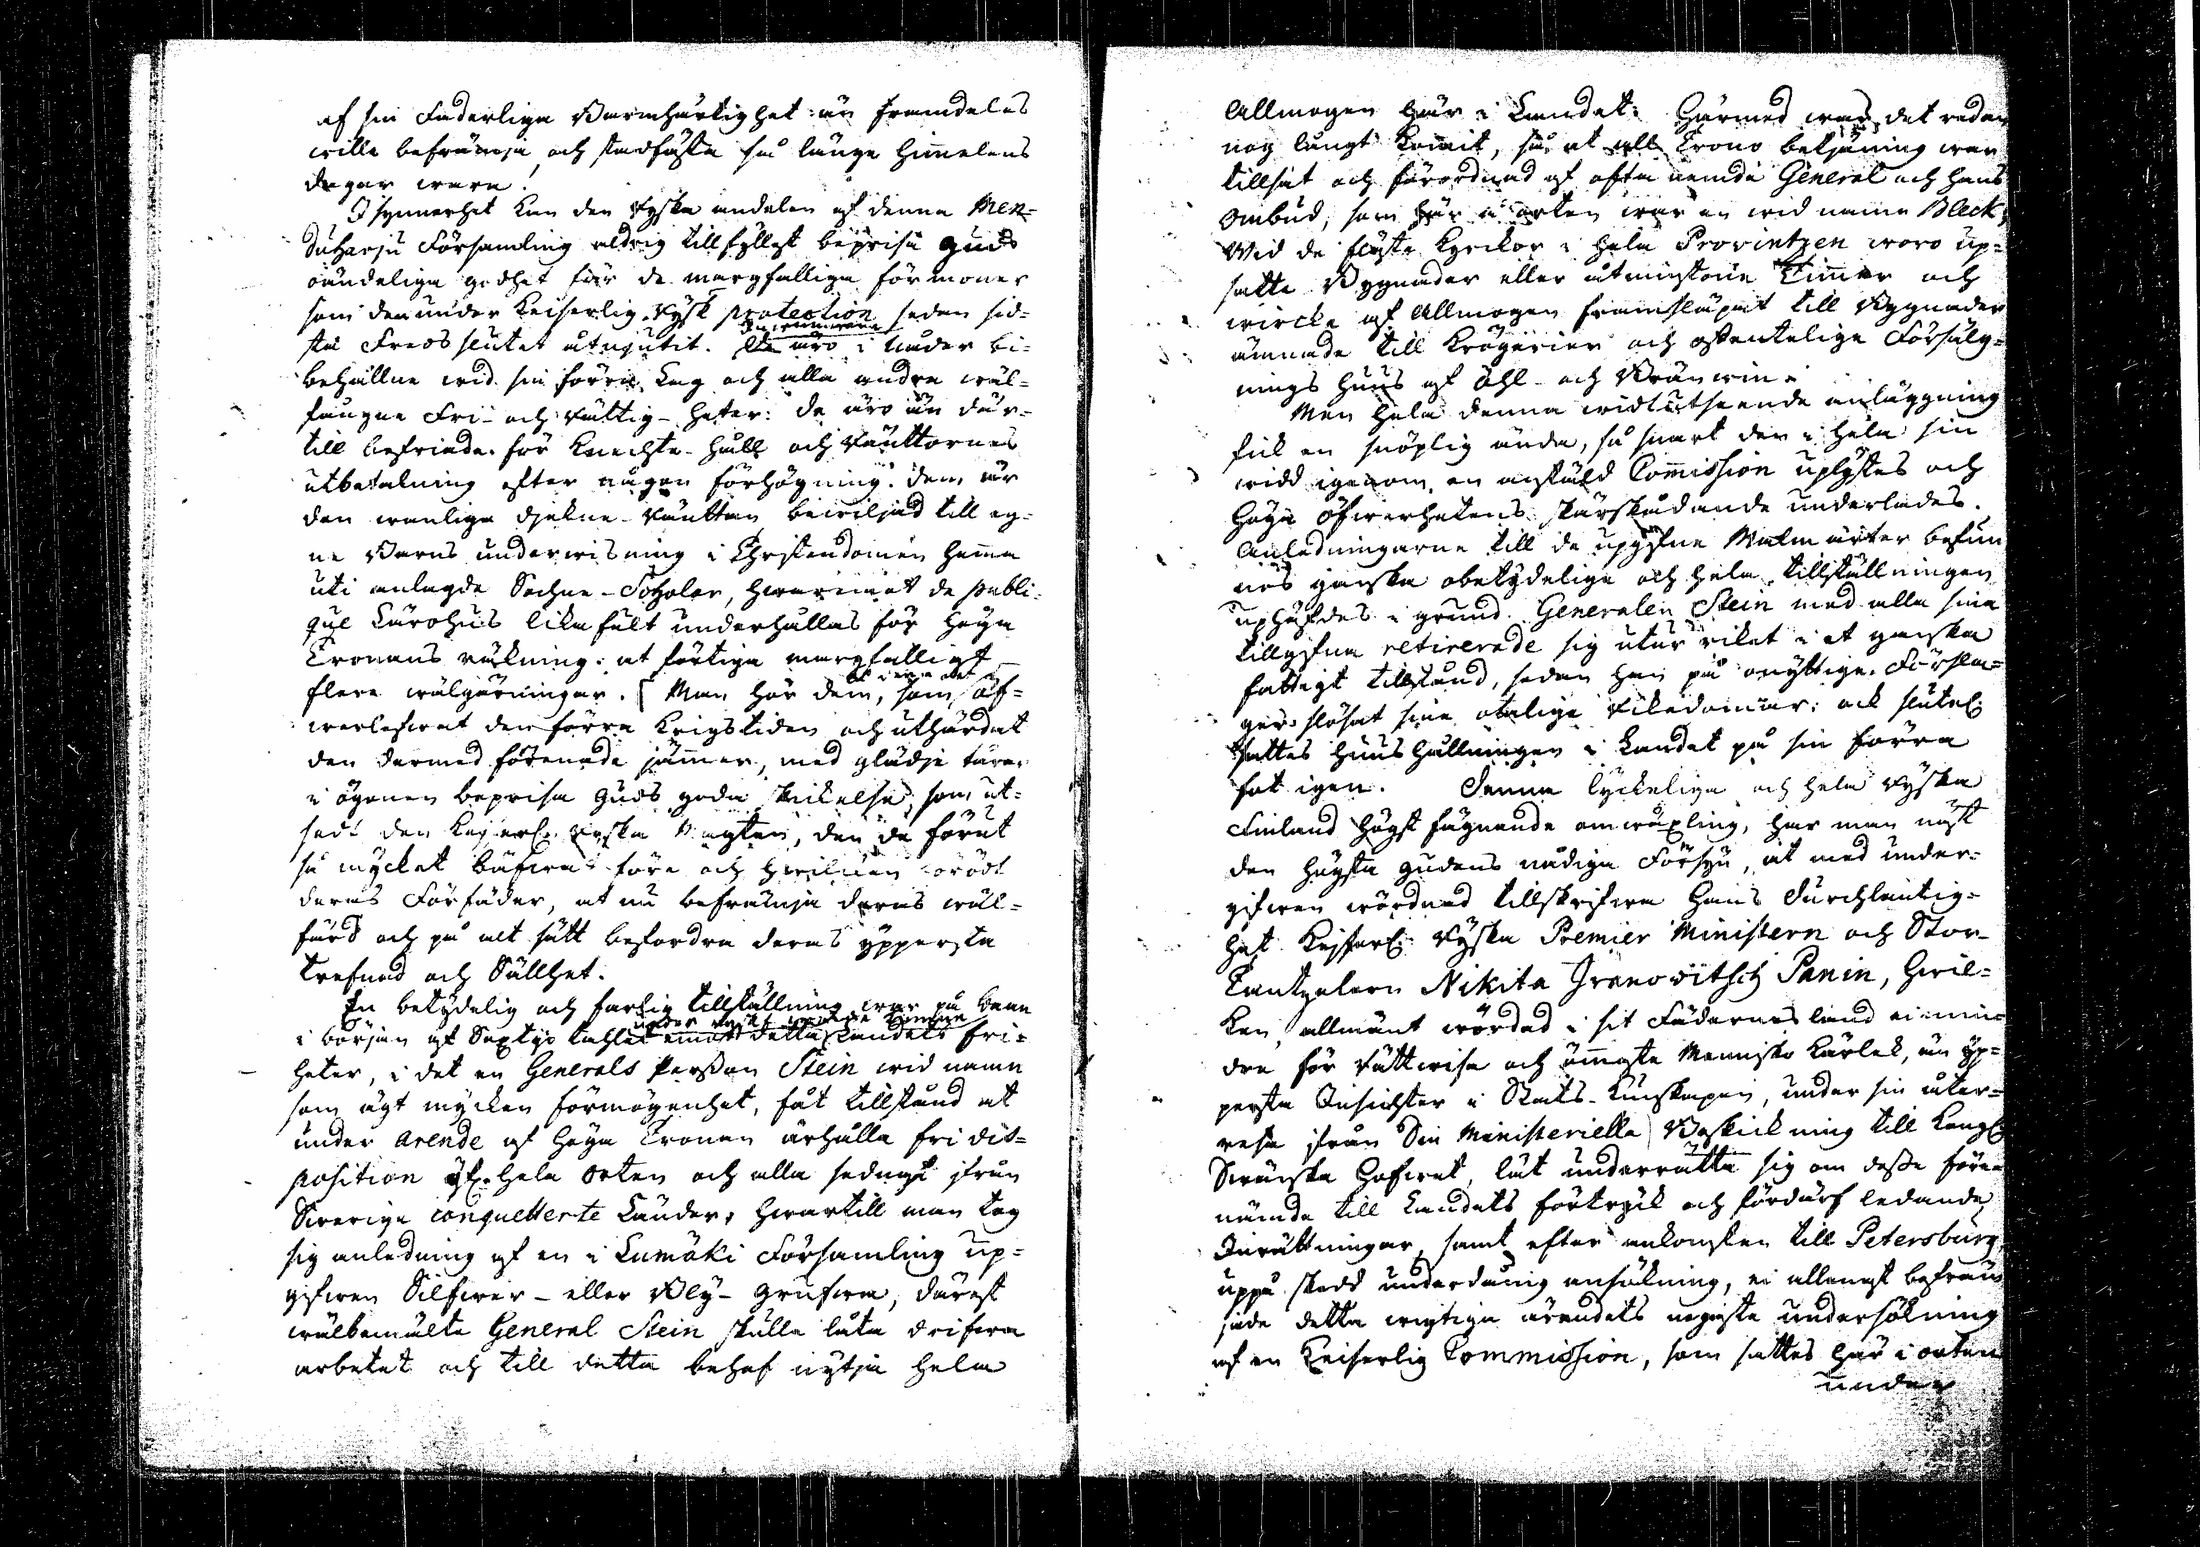 af sin Faderliga Barmhärtighet än framdeles
wille befrämja och stadfästa så länge Himmelens
dagar wara!
I synnerhet kan den Ryska andelen af denna Men-
duharju Församling aldrig tillfyllest beprisa Guds
oändeliga godhet för de margfalliga förmoner
som den under Keiserlig Rysk protection sedan sid-
sta Fredsslutet åtnjutit. De äro i Nåder bi-
behållne wid sin förra Lag och alla andra wäl-
fångne Fri- och Rättig-heter: de äro än där-
till befriade för Knechte-håll och Räntornes
utbetalning efter någon förhögning: dem är
den wanliga Djekne-Räntan bewiljad till eg-
ne Barns underwisning i Christendomen hemma
uti anlagde Sochne-Scholar, hwaremot de publi-
que Lärohus lika fult underhållas för Höga
Cronans räkning: at förtiga margfalligt
flere wälgärningar. Man hör dem, som öf-
werlefwat den förra Krigstiden och uthärdat
den dermed förenade jämmer, med glädje tårar
i ögonen beprisa Guds goda skickelse, som ut-
sedt den Kejserl. Ryska Magten, den de förut
så mycket bäfwat före och hwilken ödt
deras Förfäder, at nu befrämja deras wäl-
färd och på alt sätt befordra deras ypperste
trefnad och Sällhet.
En betydelig och farlig tillställning war på bane
i början af Sextio talet emot detta Landets fri-
heter, i det en Generals Person Stein wid namn
som ägt mycken förmögenhet, fåt tillstånd at
under arende af Höga Cronan erhålla fri dis-
position af hela Orten och alla sednast ifrån
Swerige conquetterte Länder, hwartill man tog
sig anledning af en i Lumäki Församling up-
gifwen Silfwer- eller Bly-Grufwa, därest
wälbemälte General Stein skulle låta drifwa
arbetet och till detta behof nytja hela
Allmogen här i Landet: Härmed war det redan
nog långt kommit, så at all Crono betjäning war
tillsat och förordnad af ofta nemde General och hans
Ombud, som här i orten war en wid namn Bleck,
Wid de fläste Kyrkor i hela Provintzen woro up-
satte Bygnader eller åtminstone Timmer och
wircke af Allmogen framsläpat till Bygnader
ämnade till Krögerier och offentelige Försälg-
nings huus af Öhl- och Bränwin.
Men hela denna widtutseende anläggning
fick en snöplig ända, så snart den i hela sin
widd igenom en anstäld Commission uplystes och
Höga Öfwerhetens skärskådande underlades.
Anledningarne till de upgifne Malmarter befun-
nos ganska obetydeliga och hela tillställningen
uphäfdes i grund. Generalen Stein med alla sina
tillgifna retirerade sig utur riket i et ganska
fattigt tillstånd, sedan han på onyttige Försla-
ger slösat sine otalige Rikedomar: ock slutel.
sattes huushållningen i Landet på sin förra
fot igen. Denna lyckeliga och hela Ryska
Finland högst fägnande omwäxling, har man näst
den högsta Gudens nådiga Försyn, at med under-
gifwen wördnad tillskrifwa Hans Durchlautig-
het Kejserl. Ryska Premier Ministern och Stor-
Cantzeleren Nikita Iwanowitsch Panin, hwil-
ken, allmänt wördad i sit Fädernesland ei min-
dre för Rättwisa och ömmaste Mennisko kärlek, än yp-
persta Insichter i Stats-kunskapen, under sin åter-
resa ifrån Sin Ministeriella Beskickning till Kongl.
Swänska Hofwet, låt underrätta sig om desse före-
nämde till Landets förtryck och fördärf ledande
Inrättningar, samt efter ankomsten till Petersburg,
uppå skedd underdånig ansökning, ei allenast befräm-
jade detta wigtiga ärendets nogaste undersökning
af en Keiserlig Commission, som sattes här i orten
under